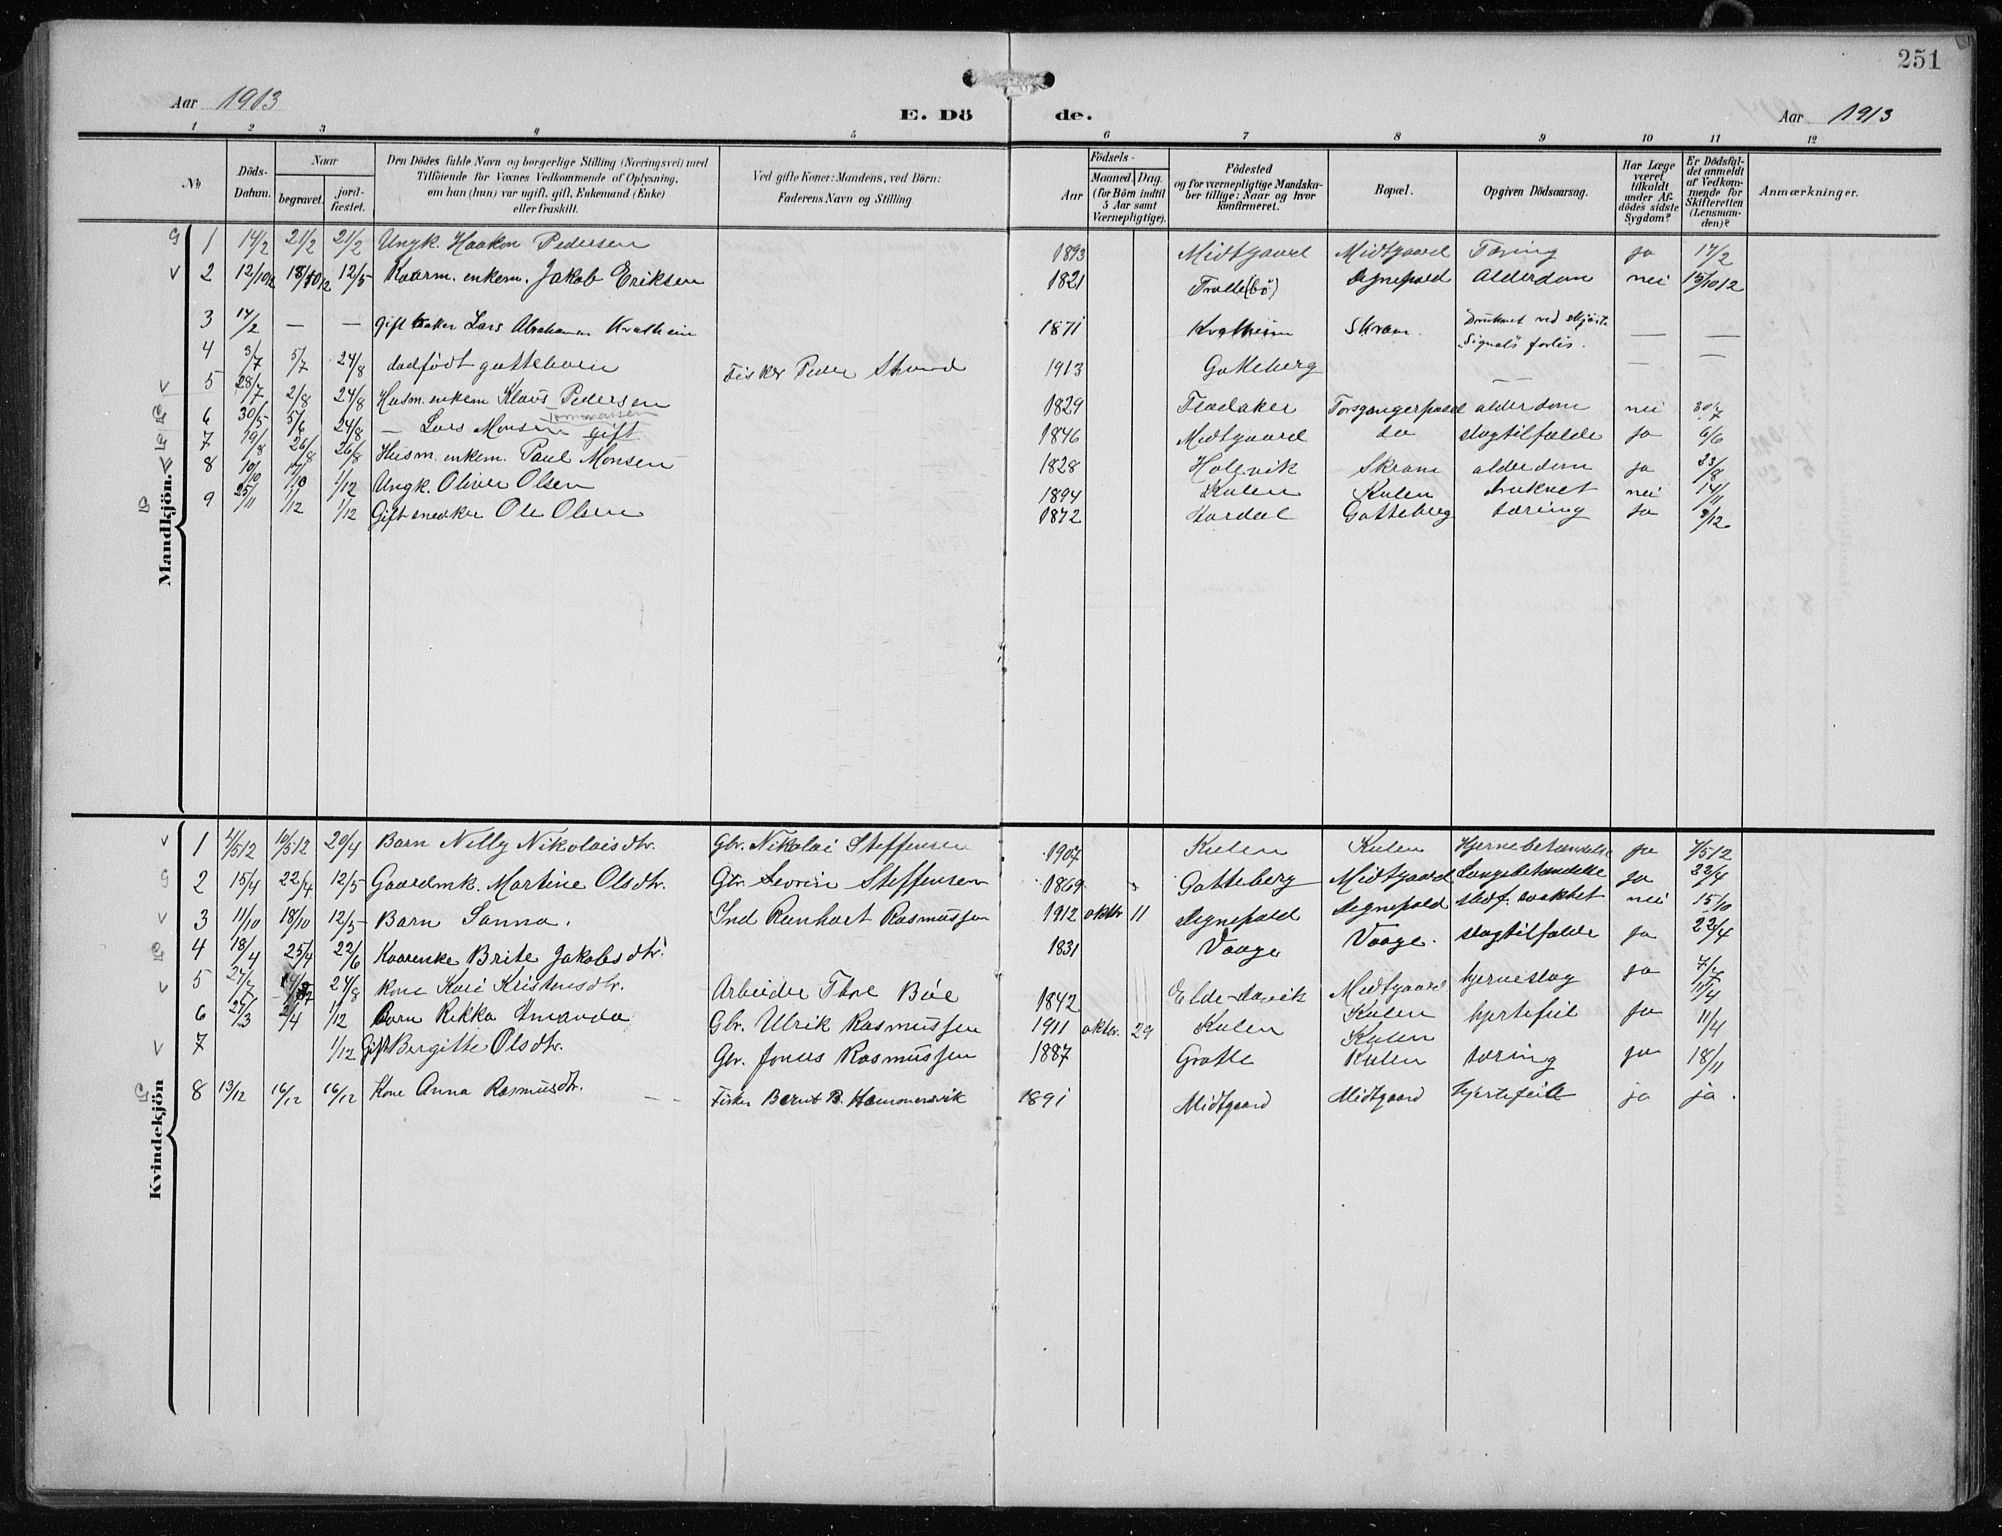 251
Aar 1913
E. Dö de.
Aar 1913
1 2 3 4 5 6 7 8 9 10 11 12
No
Döds-Datum.
Naar
begravet.
jord-fæstet.
Den Dödes fulde Navn og borgerlige Stilling (Næringsvei) med Tilföiende for Voxnes Vedkommende af Oplysning, om han (hun) var ugift, gift, Enkemand (Enke) eller fraskilt.
Ved gifte Koner: Mandens, ved Börn: Faderens Navn og Stilling
Födsels-
Aar
Maaned. Dag.
(for Börn indtil 5 Aar samt Værnepligtige).
Födested og for værnepligtige Mandska-ber tillige: Naar og hvor konfirmeret.
Bopæl.
Opgiven Dödsaarsag.
Har Læge været tilkaldt under Af-dödes sidste Sygdom?
Er Dödsfal-det anmeldt af Vedkom-mende for Skifteretten (Lensman-den)?
Anmærkninger.
Mandkjön.
1 14/2 21/2 21/2 Ungk. Haakon Pedersen 1893 Midtgaard Midtgaard Tæring ja 17/2
2 12/10 12 18/10 12 12/5 Kaarm. enkem. Jakob Eriksen 1821 Trolle(bö) Alderdom nei 15/10 12
3 14/2 — — Gift Lars Abrahams. Kvalheim 1871 Kvalheim Skram Druknet ved skjöite „Signals" forlis. — —
4 3/7 5/7 24/8 dødfödt guttebarn Fisker Peder Strand 1913 Gotteberg — — —
5 28/7 2/8 24/8 Husm. enkem Klaus Pedersen 1829 Flaaker alderdom nei 30/7
Tommassen
6 30/5 5/6 24/8 — Lars Monsen gift 1846 Midtgaard do slagtilfælde ja 6/6
7 19/8 26/8 26/8 Husm. enkem. Paul Monsen 1828 Holevik Skram alderdom ja 23/8
8 10/10 17/10 1/12 Ungk. Oliver Olsen 1894 Kulen Kulen druknet nei 14/11
9 25/11 1/12 1/12 Gift snedker Ole Olsen 1872 Hardal Gotteberg tæring ja 3/12
Kvindekjön
1 4/5 12 10/5 12 20/4 Barn Nelly Nikolaisdtr. Gbr. Nikolai Steffensen 1907 Kulen Kulen Hjernebetændelse ja 7/5 12
2 15/4 22/4 12/5 Gaardmk. Martine Olsdtr. Gbr. Severin Steffensen 1869 Gotteberg Midtgaard Lungebetændelse ja 22/4
3 11/10 18/10 12/5 Barn Sanna. Ind Reinhart Rasmussen 1912 oktbr 11 medf. svakhet nei 15/10
4 18/4 25/4 22/6 Kaarenke Brite Jakobsdtr. 1831 Vaage Vaage. slagtilfælde ja 22/4
5 27/7 24/8 Kone Kari Kristensdtr. Arbeider Thore Böe 1842 Midtgaard hjerneslag ja 7/7
6 27/3 2/4 1/12 Barn Rikka Amanda Gbr. Ulrik Rasmussen 1911 oktbr. 29 Kulen Kulen hjertefeil ja 11/4
7 1/12 Gift Bergitte Olsdtr. Gbr. Jonas Rasmussen 1887 Grotle Kulen Kulen tæring ja 18/11
8 13/12 16/12 16/12 Kone Anna Rasmusdtr. Fisker Bernt B. Hammersvik 1891 Midtgaard Midtgaard hjertefeil ja ja.